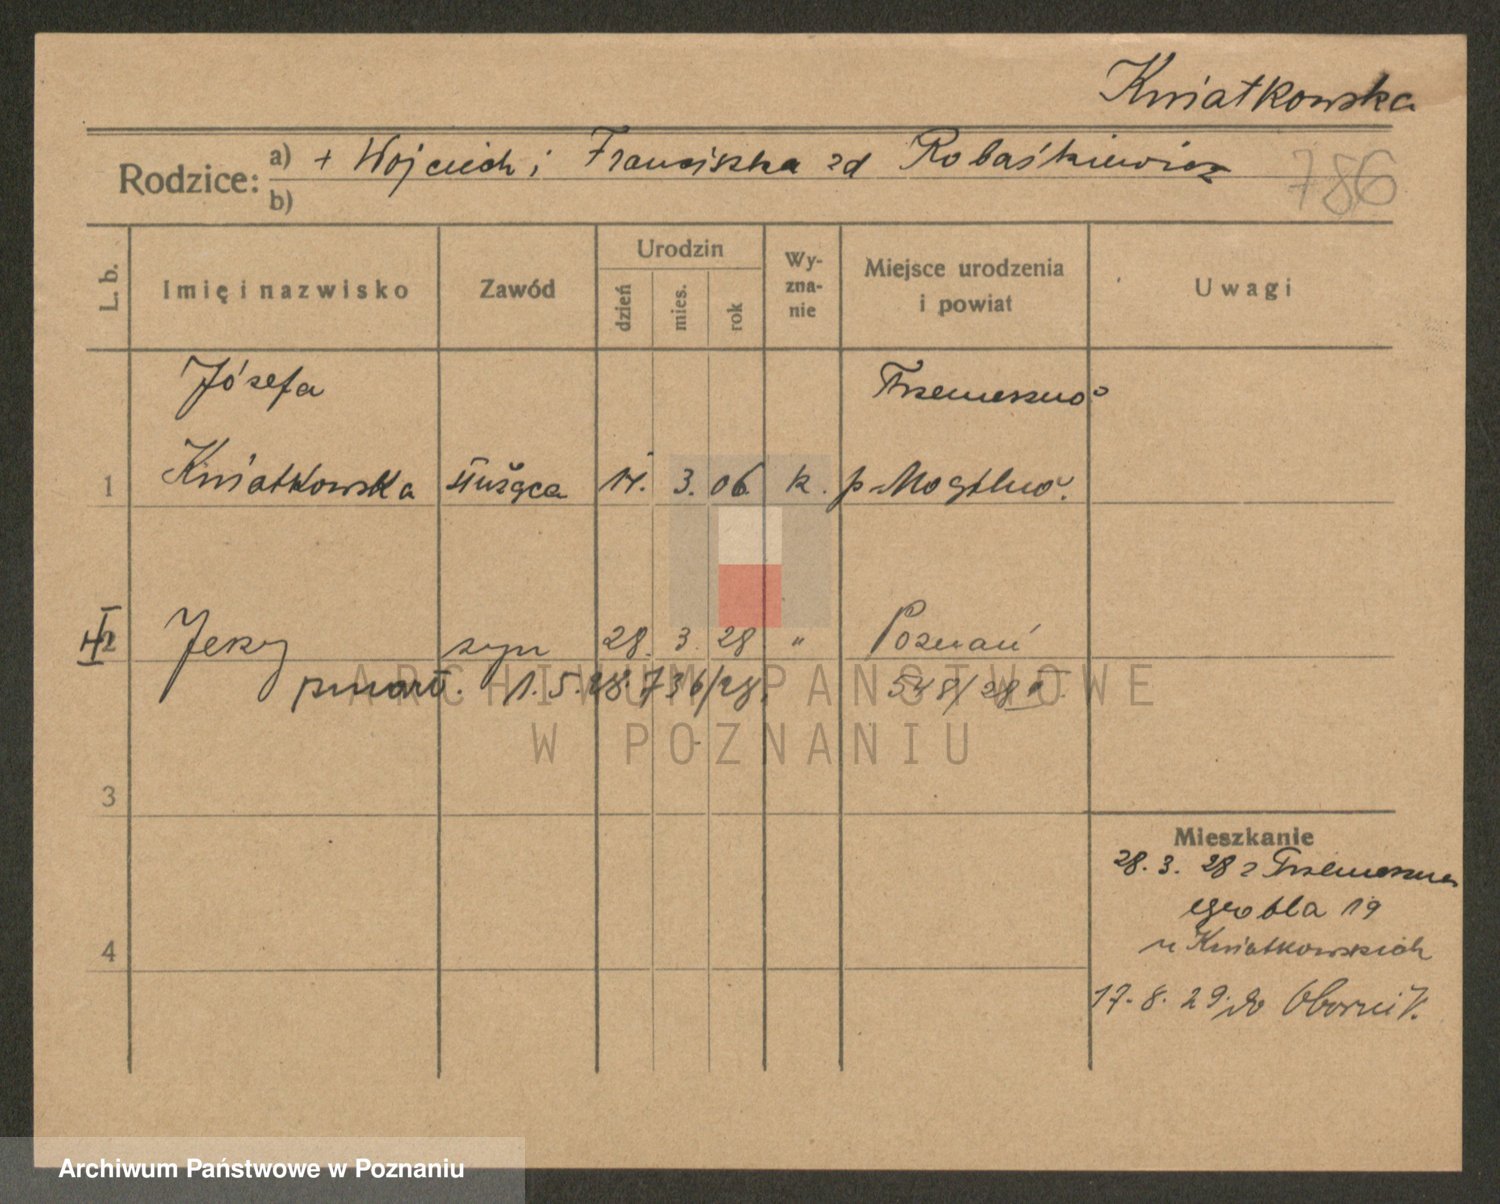 Kwiatkowska
Rodzice: a) + Wojciech i Franciszka zd Robaśkiewicz
b)
786
L. b.
Imię i nazwisko
Zawód
Urodzin
dzień
mies.
rok
Wy-
zna-
nie
Miejsce urodzenia
i powiat
Uwagi
Józefa
Trzemeszno
1 Kwiatkowska służąca 14. 3. 06 k. p. Mogilno.
2 Jerzy syn 28. 3. 28 " Poznań
zmarł. 1. 5. 28. 736/28. 548/28
3
4
Mieszkanie
28. 3. 28 z Trzemeszna
Grobla 19
u Kwiatkowskich
17. 8. 29. do Obornik.
ARCHIWUM PAŃSTWOWE
W POZNANIU
Archiwum Państwowe w Poznaniu